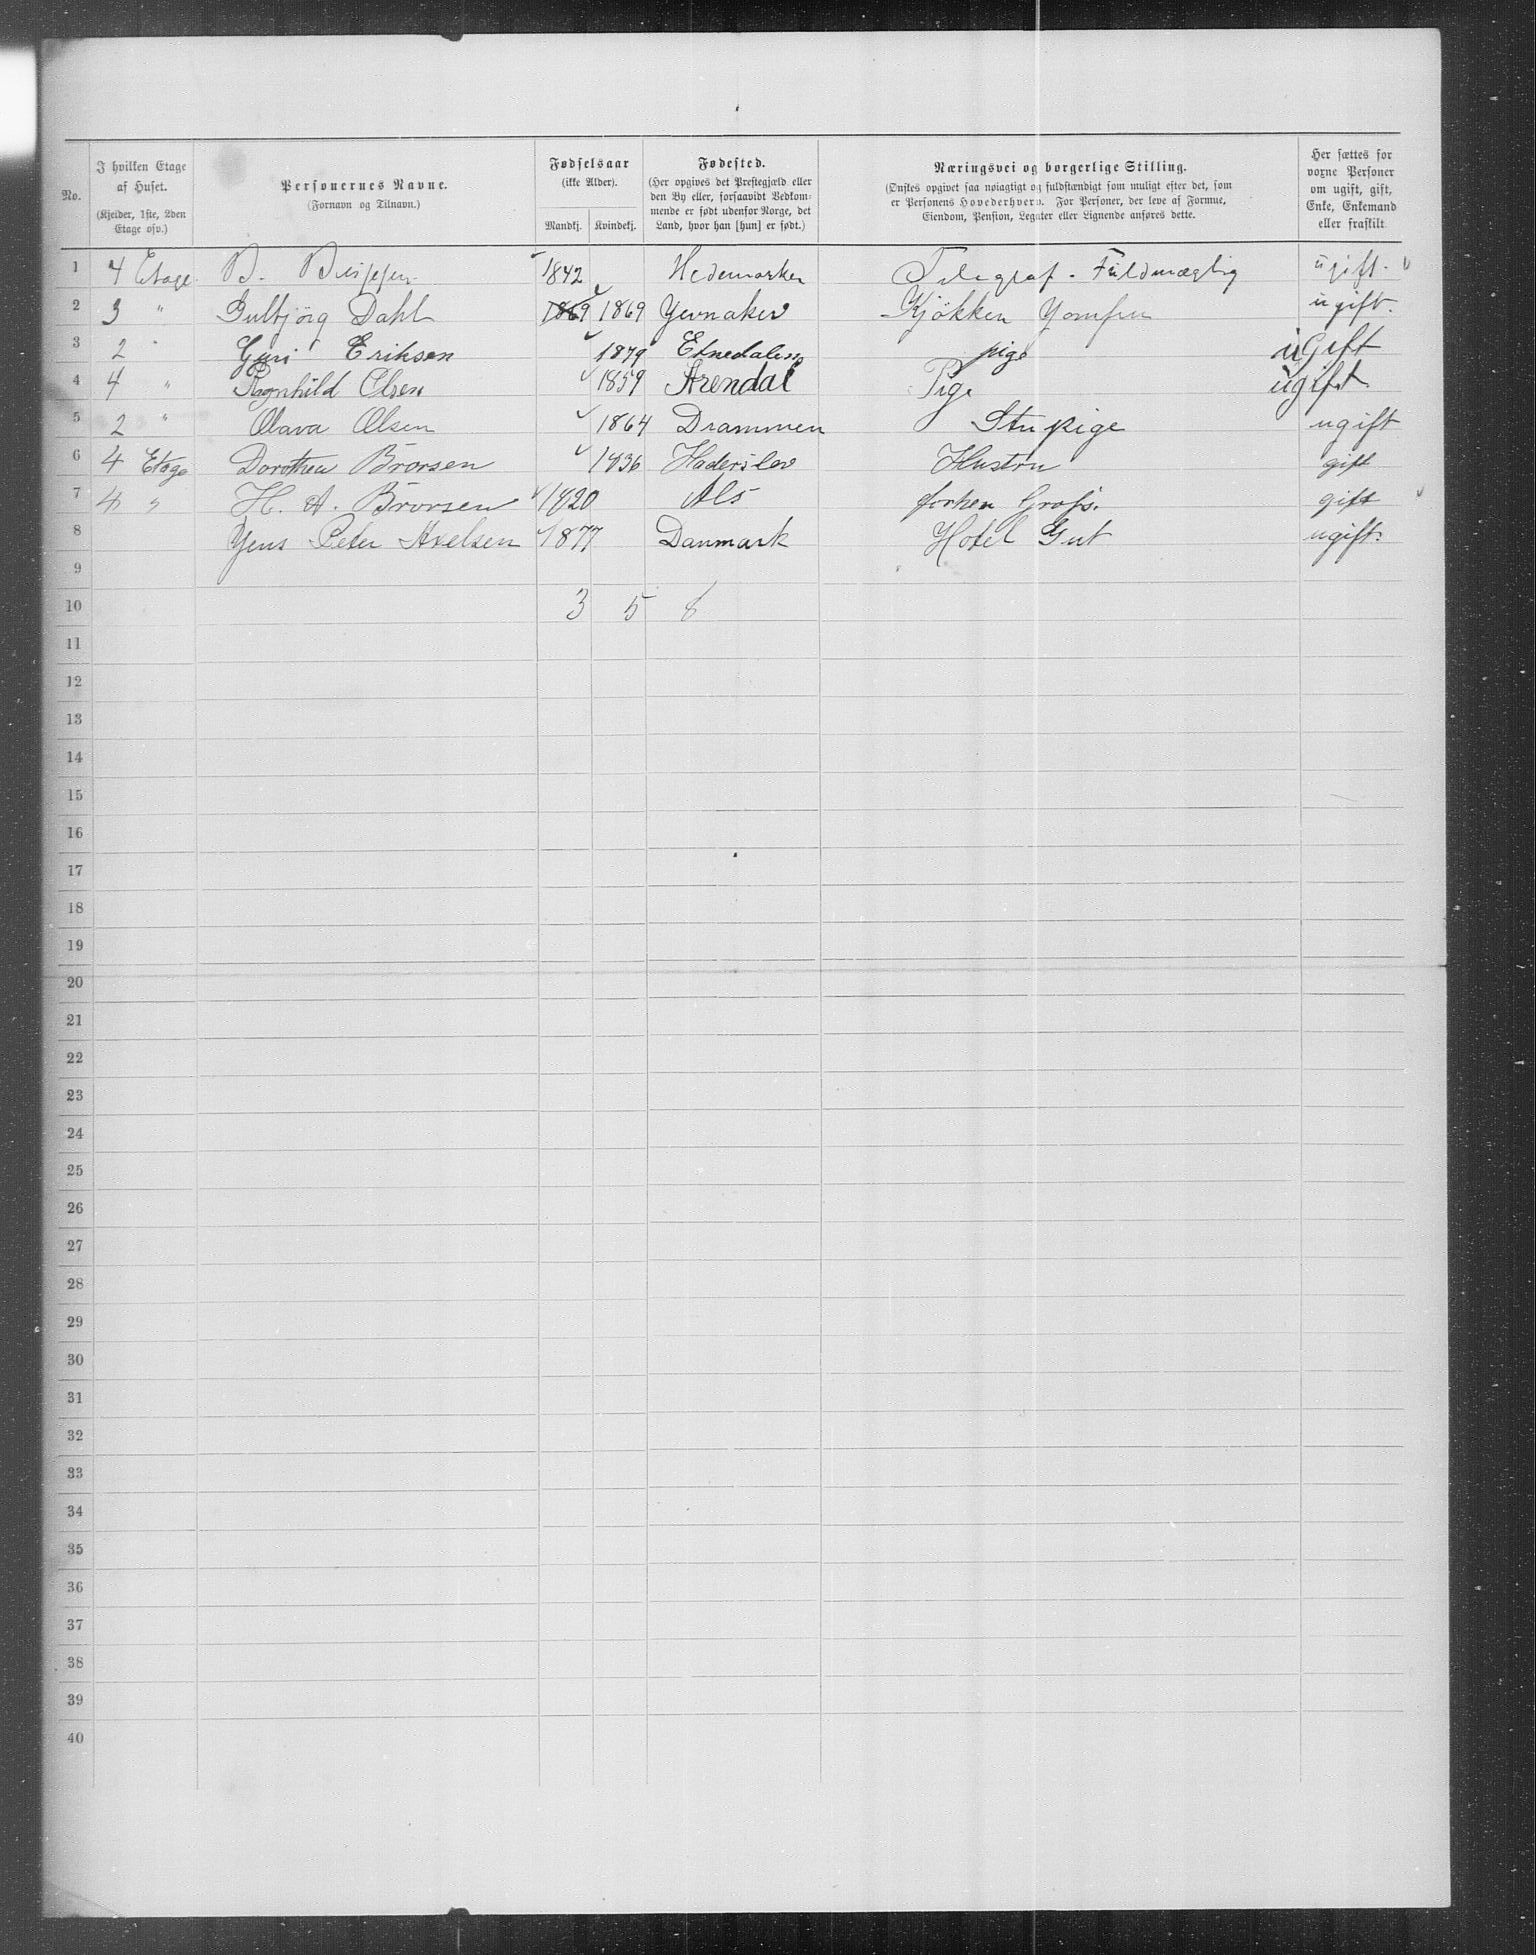 No.
I hvilken Etage af Huset.
(Kjelder, 1ste, 2den Etage osv.)
Personernes Navne.
(Fornavn og Tilnavn.)
Fødselsaar
(ikke Alder).
Mandkj. Kvindekj.
Fødested.
(Her opgives det Præstegjæld eller den By eller, forsaavidt Vedkommende er født udenfor Norge, det Land, hvor han [hun] er født.)
Næringsvei og borgerlige Stilling.
(Ønskes opgivet saa nøiagtigt og fuldstændigt som muligt efter det, som er Personens Hovederhverv. For Personer, der leve af Formue, Eiendom, Pension, Legater eller Lignende anføres dette.
Her sættes for voxne Personer om ugift, gift, Enke, Enkemand eller fraskilt
1 4 Etage B. 1842 Hedemarken Telegraf-Fuldmægtig ugift.
2 3 " Gulbjörg Dahl 1869 1869 Yevnaker Kjökken Yomfru ugift.
3 2 " Guri Eriksen 1879 Etnedalens pige uGift
4 4 " Ragnhild Olsen 1859 Arendal Pige ugift
5 2 " Olava Olsen 1864 Drammen Stupige ugift
6 4 Etage Dorothea Brorsen 1836 Haderslev Hustru gift
7 4 " H. A. Brorsen 1820 Als forhen Gross. gift
8 Yens Peter Axelsen 1877 Danmark Hotel Gut ugift.
9
10 3 5 8
11
12
13
14
15
16
17
18
19
20
21
22
23
24
25
26
27
28
29
30
31
32
33
34
35
36
37
38
39
40